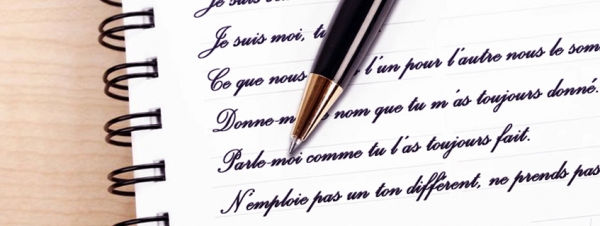 Je suis
Je suis moi, tu
Ce que nous l'un pour l'autre nous le som
Donne-m nom que tu m'as toujours donné.
Parle-moi comme tu l'as toujours fait.
N'emploie pas un ton différent, ne prends pas